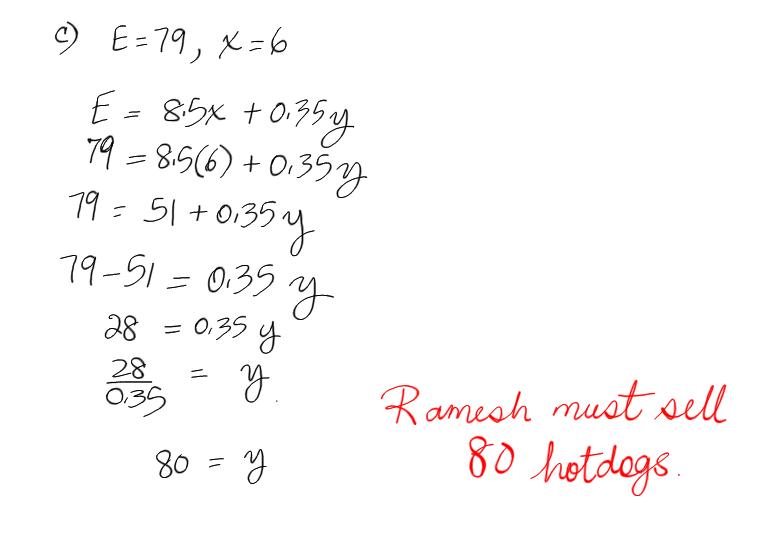 c) E = 79, x = 6
E = 8.5x + 0.35y
79 = 8.5(6) + 0.35y
79 = 51 + 0.35y
79 - 51 = 0.35 y
28 = 0.35 y
28/0.35 = y.
80 = y
Ramesh must sell
80 hotdogs.